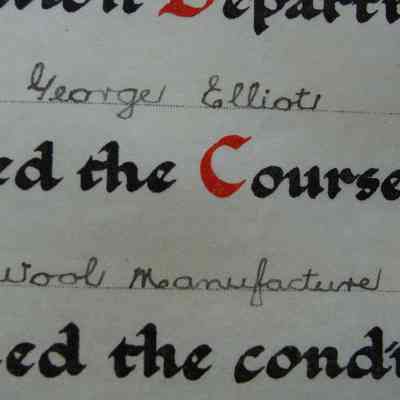 tion Departm
George Elliott
ed the Course
Wool Manufacture
ed the condi